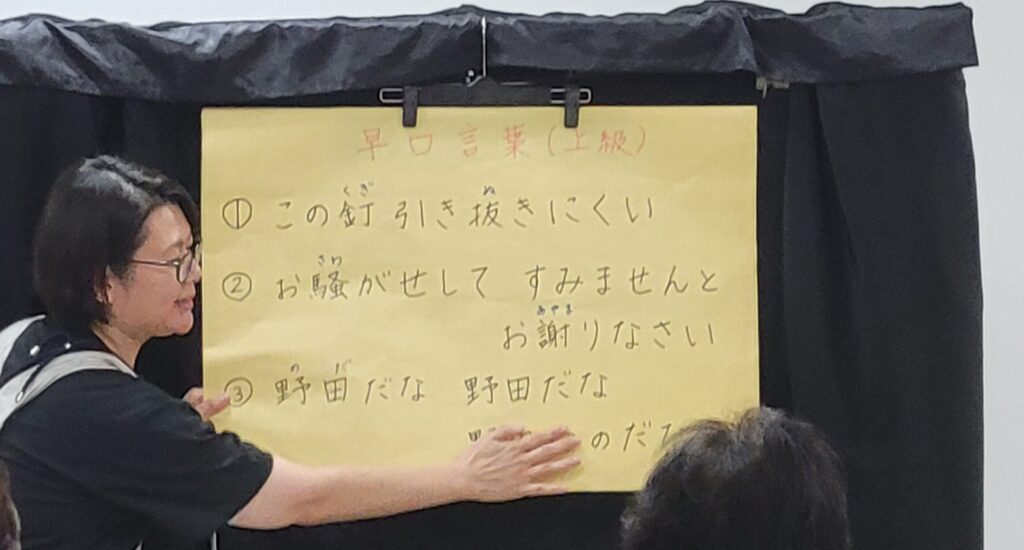 早口言葉(上級)
① この釘引き抜きにくい
② お騒がせして すみませんと
お謝りなさい
③ 野田だな 野田だな
のだ